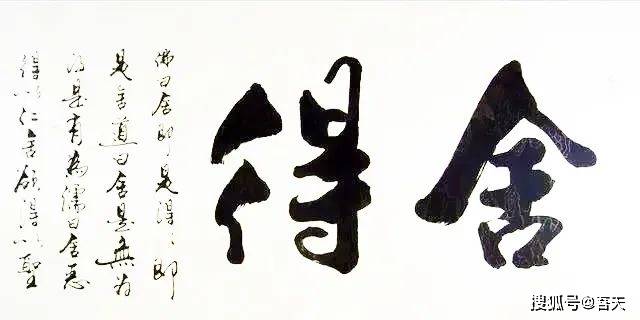 舍得
佛曰舍即是得々即
是舍道曰舍是無为
得是有為儒曰舍恶
得以仁舍欲得以聖
搜狐号@春天